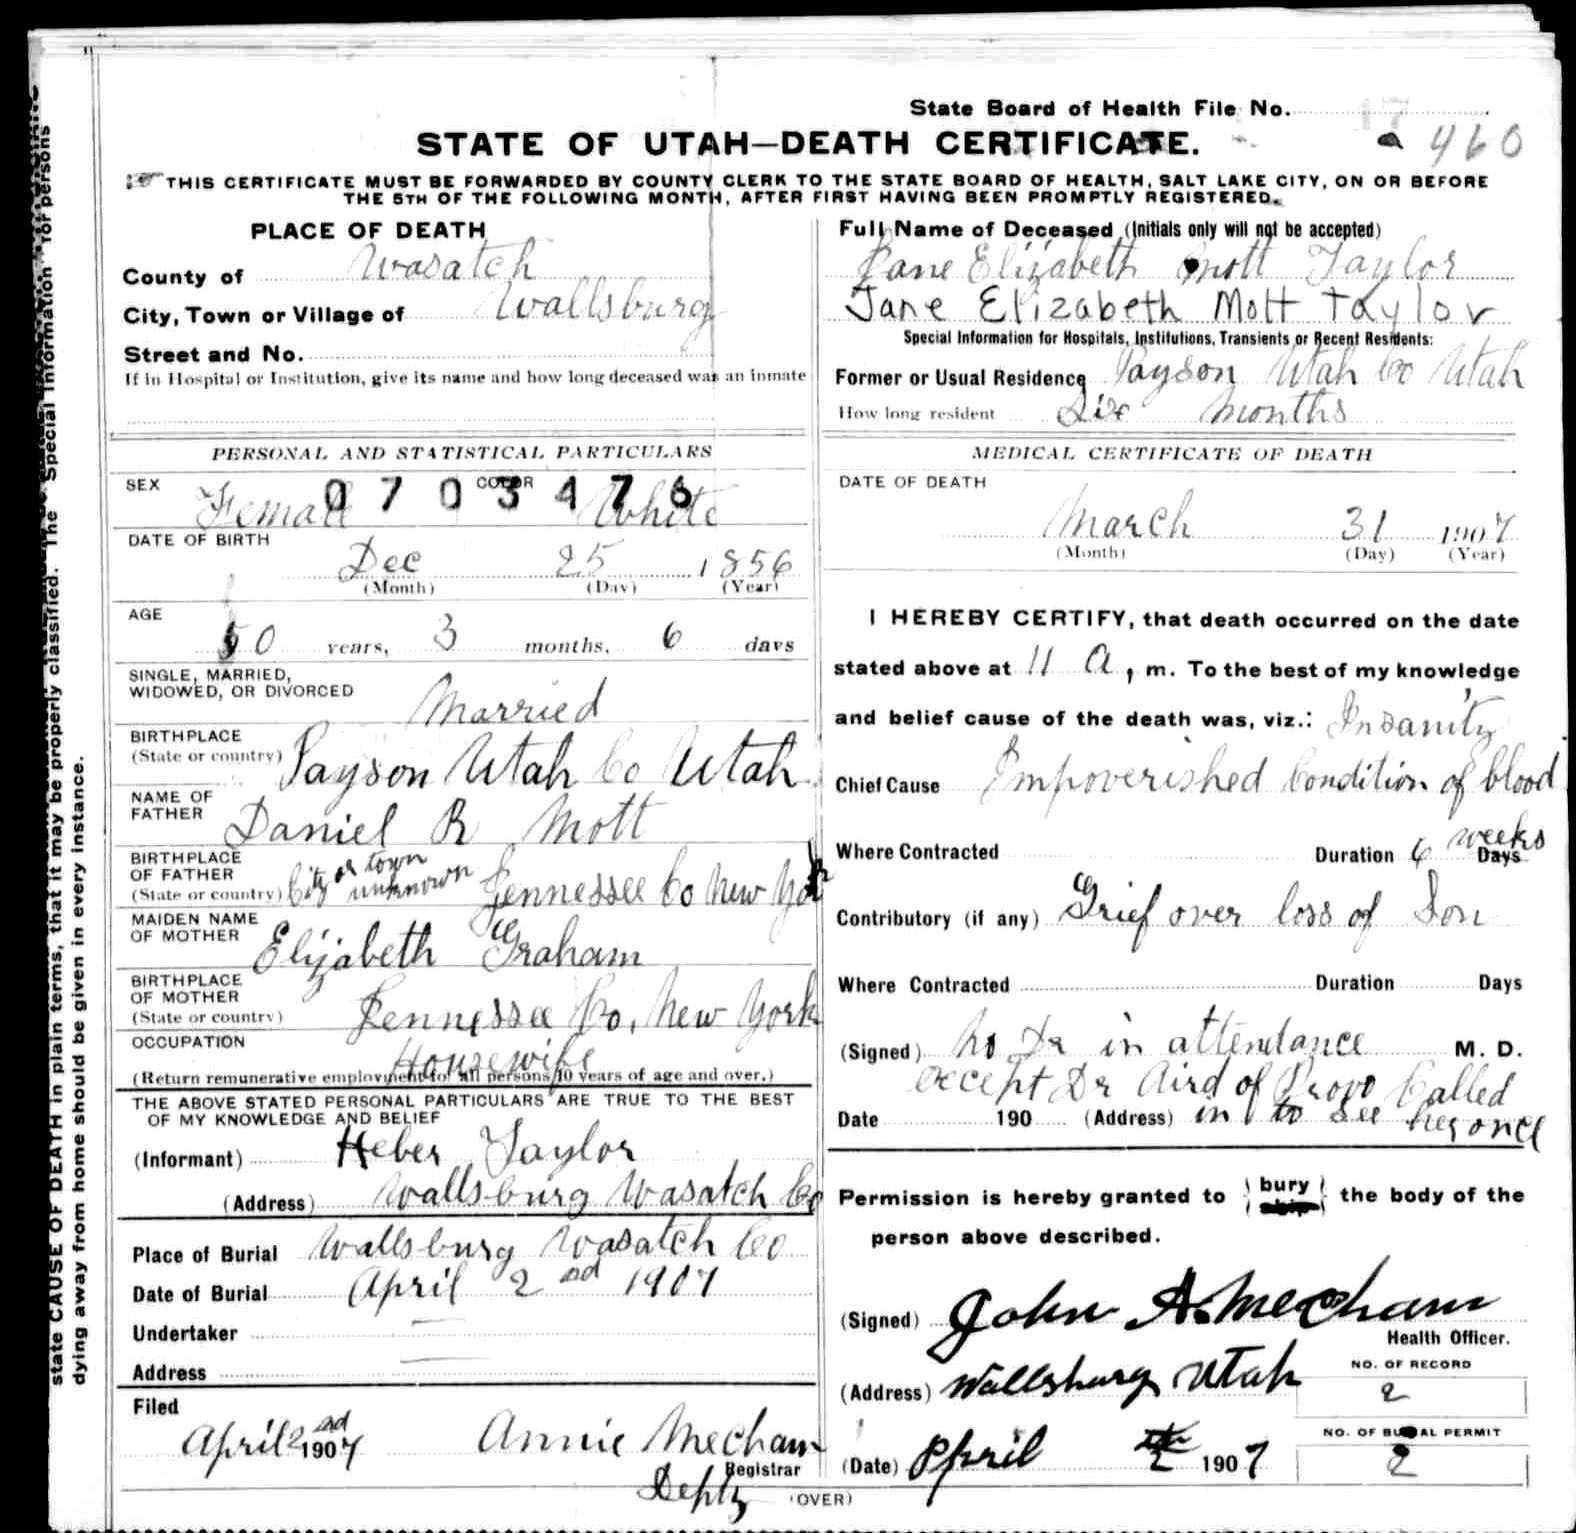 State Board of Health File No. 17
460
STATE OF UTAH—DEATH CERTIFICATE.
THIS CERTIFICATE MUST BE FORWARDED BY COUNTY CLERK TO THE STATE BOARD OF HEALTH, SALT LAKE CITY, ON OR BEFORE
THE 5TH OF THE FOLLOWING MONTH, AFTER FIRST HAVING BEEN PROMPTLY REGISTERED.
PLACE OF DEATH
County of Wasatch
City, Town or Village of Wallsburg
Street and No.
If in Hospital or Institution, give its name and how long deceased was an inmate
Full Name of Deceased (Initials only will not be accepted)
Jane Elizabeth Mott Taylor
Jane Elizabeth Mott Taylor
Special Information for Hospitals, Institutions, Transients or Recent Residents:
Former or Usual Residence Payson Utah Co Utah
How long resident Six Months
PERSONAL AND STATISTICAL PARTICULARS
SEX Female COLOR White
0703476
DATE OF BIRTH
Dec 25 1856
(Month) (Day) (Year)
AGE
50 years, 3 months, 6 days
SINGLE, MARRIED,
WIDOWED, OR DIVORCED Married
BIRTHPLACE
(State or country) Payson Utah Co Utah
NAME OF
FATHER Daniel R Mott
BIRTHPLACE
OF FATHER
(State or country) City or town unknown Jennessee Co New York
MAIDEN NAME
OF MOTHER Elizabeth Graham
BIRTHPLACE
OF MOTHER
(State or country) Jennessee Co, New York
OCCUPATION Housewife
(Return remunerative employment for all persons 10 years of age and over.)
THE ABOVE STATED PERSONAL PARTICULARS ARE TRUE TO THE BEST
OF MY KNOWLEDGE AND BELIEF
(Informant) Heber Taylor
(Address) Wallsburg Wasatch Co
Place of Burial Wallsburg Wasatch Co
Date of Burial April 2nd 1907
Undertaker
Address
Filed
April 2nd 1907 Annie Mecham
Registrar
Depty
MEDICAL CERTIFICATE OF DEATH
DATE OF DEATH
March 31 1907
(Month) (Day) (Year)
I HEREBY CERTIFY, that death occurred on the date
stated above at 11 A, m. To the best of my knowledge
and belief cause of the death was, viz.: Insanity
Chief Cause Impoverished Condition of blood
Where Contracted Duration 6 weeks Days
Contributory (if any) Grief over loss of Son
Where Contracted Duration Days
(Signed) No Dr in attendance M. D.
except Dr Aird of Provo Called
Date 190 (Address) in to see her once
Permission is hereby granted to { bury ship } the body of the
person above described.
(Signed) John A. Mecham
Health Officer.
(Address) Wallsburg Utah
NO. OF RECORD
2
NO. OF BURIAL PERMIT
2
(Date) April 2 1907
(OVER)
state CAUSE OF DEATH in plain terms, that it may be properly classified. The "Special Information" for persons
dying away from home should be given in every instance.